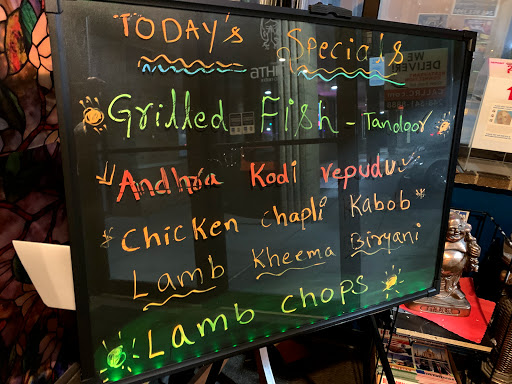 TODAY's Specials
Grilled Fish - Tandoor
Andhra Kodi vepudu
Chicken chapli Kabob
Lamb Kheema Biryani
Lamb chops
WE
DELIVER